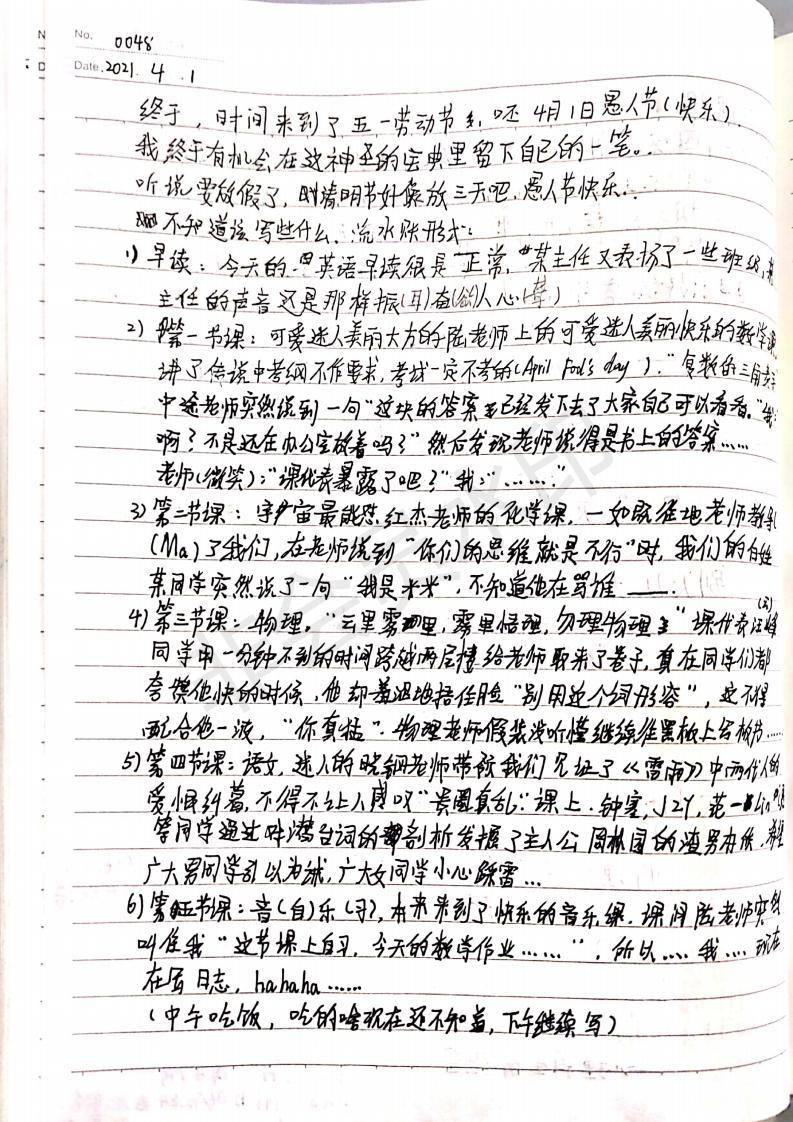 No. 0048
Date. 2021. 4. 1
终于，时间来到了五一劳动节，呸 4月1日愚人节(快乐)
我终于有机会在这神圣的宝典里留下自己的一笔。
听说要放假了，清明节好像放三天吧，愚人节快乐..
不知道该写些什么，流水账形式：
1) 早读：今天的英语早读很是正常，某主任又表扬了一些班级，某
主任的声音还是那样振(耳)奋(欲)人心(聋)
2) 第一节课：可爱迷人美丽大方的陆老师上的可爱迷人美丽快乐的数学课
讲了传说中考纲不作要求，考试一定不考的(April Fool's day)，"复数的三角表示
中途老师突然说到一句"这块的答案已经发下去了大家自己可以看看。"我：
啊？不是还在办公室放着吗？"然后发现老师说得是书上的答案……
老师(微笑)："课代表暴露了吧？"我："……."
3) 第二节课：宇宙最能 红杰老师的化学课，一如既往地老师教训
(Ma)了我们，在老师说到"你们的思维就是不行"时，我们的白姓
某同学突然说了一句"我是米米"，不知道他在骂谁 ——.
4) 第三节课：物理，"云里雾里，雾里悟理，勿理物理"课代表汪
同学用一分钟不到的时间跨越两层楼给老师取来了卷子，真在同学们都
夸赞他快的时候，他却羞涩地捂住脸"别用这个词形容"，这不得
配合他一波，"你真猛"．物理老师假装没听懂继续往黑板上写板书……
5) 第四节课：语文，迷人的晓钢老师带领我们见证了《雷雨》中两代人的
爱恨纠葛，不得不让人感叹"贵圈真乱"课上，钟寒，JZY，范一 Lin
等同学通过对潜台词的剖析发掘了主人公 周朴园的渣男本质，希望
广大男同学引以为诫，广大女同学小心踩雷…
6) 第五节课：音(自)乐(习)，本来来到了快乐的音乐课，课间陆老师突然
叫住我"这节课上自习，今天的数学作业……"，所以……我……现在
在写日志，hahaha……
(中午吃饭，吃的啥现在还不知道，下午继续写)